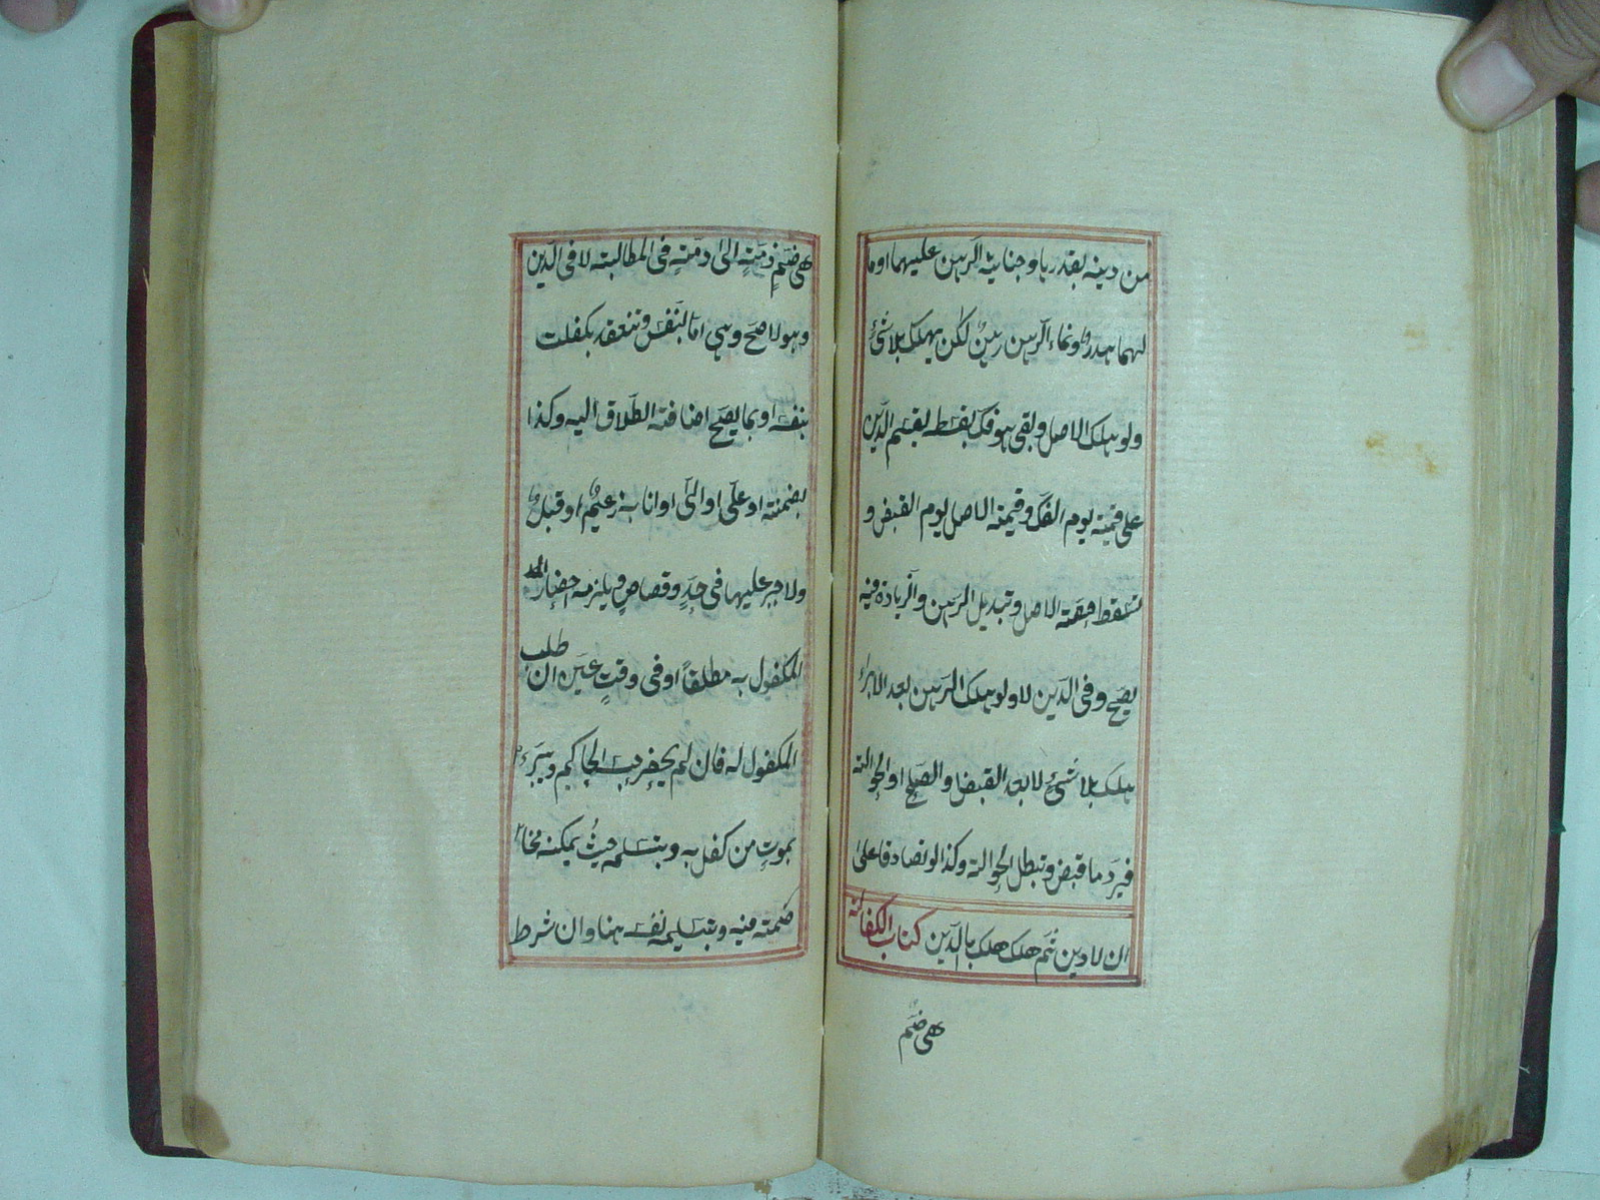 من دينه بقدرها وجناية الرهن عليهما او ما
لهما هدر ونماء الرهن رهن لكن يهلك بلا شئ
ولو هلك الاصل وبقى هو فك بقسطه يقسم الدين
على قيمته يوم الفك وقيمة الاصل يوم القبض و
تسقط حصة الاصل وتبديل الرهن والزيادة فيه
يصح وفى الدين لا ولو هلك الرهن بعد الابراء
هلك بلا شئ لا بعد القبض والصلح او الحوالة
فيرد ما قبض وتبطل الحوالة وكذا لو تصادقا على
ان لا دين ثم هلك هلك بالدين كتاب الكفالة
هى ضم
هى ضم ذمة الى ذمة فى المطالبة لا فى الدين
وهو الاصح وهى اما بالنفس وتنعقد بكفلت
بنفسه او بما يصح اضافة الطلاق اليه وكذا
بضمنته او على او الى او انا به زعيم او قبيل
ولا جبر عليها فى حد وقصاص ويلزمه احضار
المكفول به مطلقا او فى وقت عين ان طلب
المكفول له فان لم يحضر حبسه الحاكم ويبرء
بموت من كفل به وبتسليمه حيث يمكنه مخا
صمته فيه وبتسليمه نفسه هنا وان شرط